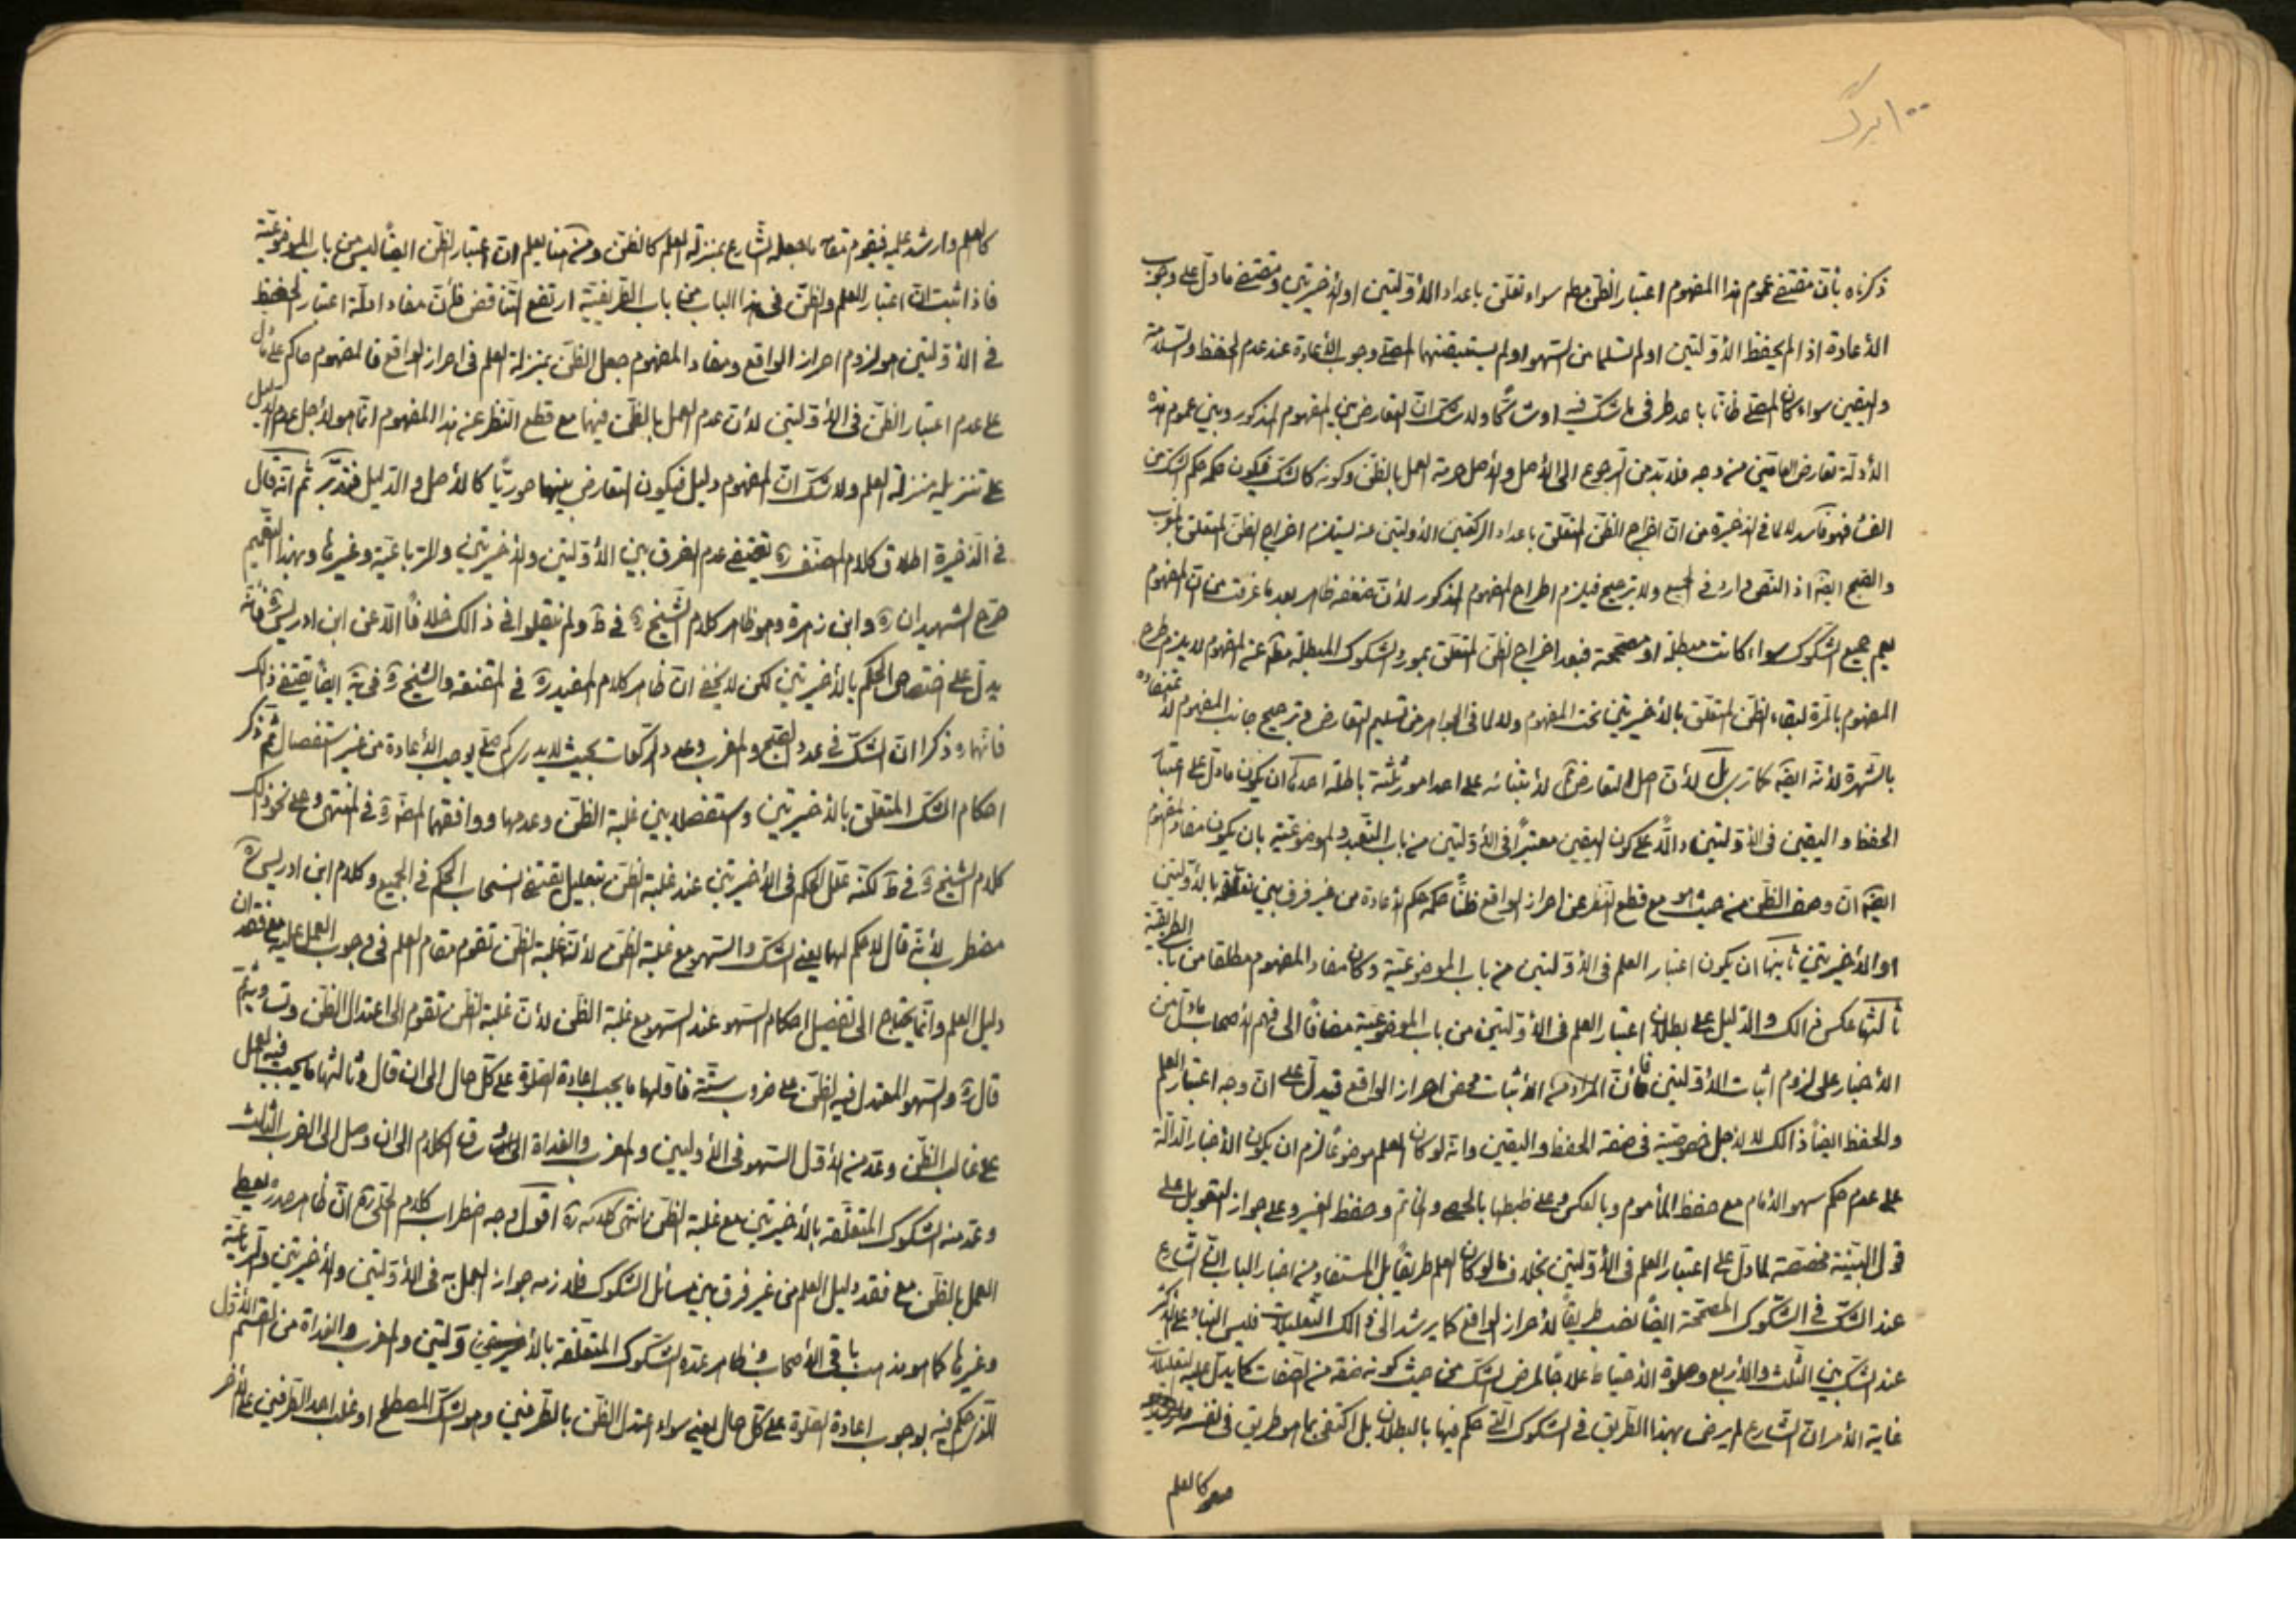 ۱۰۰ برگ
ذكرناه بانّ مقتضى عموم هذا المفهوم اعتبار الظنّ مطم سواء تعلّق باعداد الأوّلتين او الأخيرتين ومقتضى ما دلّ على وجوب
الأعادة اذا لم يحفظ الأوّلتين او لم تسلما من السّهو او لم يستيقنهما المصلّى وجوب الأعادة عند عدم الحفظ والسّلامة
واليقين سواء كان المصلّى ظانّا باحد طرفى ما شكّ فيه او شاكّا ولا شكّ انّ التعارض بين المفهوم المذكور وبين عموم هذه
الأدلّة تعارض العامّين من وجه فلا بدّ من الرجوع الى الأصل والأصل حرمة العمل بالظنّ وكونه كالشكّ فيكون حكمه حكم الشكّ من
الفهوم لا لما فى الذخيرة من انّ اخراج الظنّ المتعلّق باعداد الركعتين الأوليتين عنه يستلزم اخراج الظنّ المتعلّق بالمغرب
والصّبح ايضا اذ النصّ وارد فى الجميع ولا ترجيح فيلزم اطراح المفهوم المذكور لأنّ ضعفه ظاهر بعد ما عرفت من انّ المفهوم
يعمّ جميع الشّكوك سواء كانت مبطلة او مصحّحة فبعد اخراج الظنّ المتعلّق بمورد الشكوك المبطلة عن المفهوم لا يلزم طرح
المفهوم بالمرّة لبقاء الظنّ المتعلّق بالأخيرتين تحت المفهوم ولا لما فى الجواهر من تسليم التعارض وترجيح جانب المفهوم لاعتضاده
بالشهرة لأنّه ايضا كما ترى بل لأنّ اصل التعارض لأبتنائه على احد امور ثلثة باطلة احدها ان يكون ما دلّ على اعتبار
الحفظ واليقين فى الأوّلتين دالّا على كون اليقين معتبرا فى الأوّلتين من باب التعبّد والموضوعيّة بان يكون مفاد المفهوم
ايضا انّ وصف الظنّ من حيث هو مع قطع النّظر عن احراز الواقع ظنّا حكمه حكم الأعادة من غير فرق بين تعلّقه بالأوّلتين
او الأخيرتين ثانيها ان يكون اعتبار العلم فى الأوّلتين من باب الموضوعيّة وكان مفاد المفهوم مطلقا من باب الطريقيّة
ثالثها عكس ذالك والدّليل على بطلان اعتبار العلم فى الأوّلتين من باب الموضوعيّة مضافا الى فهم الأصحاب ما دلّ من
الأخبار على لزوم اثبات الأوّلتين فانّ المراد من الأثبات محض احراز الواقع فيدلّ على انّ وجه اعتبار العلم
والحفظ ايضا ذالك لا لأجل خصوصيّة فى صفة الحفظ واليقين وانّه لو كان العلم موضوعا لزم ان يكون الأخبار الدّالّة
على عدم حكم سهو الأمام مع حفظ المأموم وبالعكس وعلى ضبطها بالحصى والخاتم وحفظ الغير وعلى جواز التعويل على
قول البيّنة مخصّصة لما دلّ على اعتبار العلم فى الأوّلتين بخلاف ما لو كان العلم طريقا بل المستفاد من اخبار الباب انّ الشّارع
عند الشّكّ فى الشّكوك المصحّحة ايضا نصب طريقا لأحراز الواقع كما يرشد الى ذالك التعليلات فليس البناء على الأكثر
عند الشكّ بين الثّلث والأربع وصلوة الأحتياط علاجا لمرض الشكّ من حيث كونه صفة من الصّفات كما يدلّ عليه التعليلات
غاية الأمر انّ الشّارع لم يرض بهذا الطّريق فى الشكوك الّتى حكم فيها بالبطلان بل اكتفى بما هو طريق فى نفسه
كالعلم
كالعلم وارشد عليه فيقوم مقامه ما جعله الشّارع بمنزلة العلم كالظنّ ومن هنا يعلم انّ اعتبار الظنّ ايضا ليس من باب الموضوعيّة
فاذا ثبت انّ اعتبار العلم والظنّ فى هذا الباب من باب الطّريقيّة ارتفع التّناقض فانّ مفاد ادلّة اعتبار الحفظ
فى الأوّلتين هو لزوم احراز الواقع ومفاد المفهوم جعل الظنّ بمنزلة العلم فى احراز الواقع فالمفهوم حاكم على ما دلّ
على عدم اعتبار الظنّ فى الأوّلتين لأنّ عدم العمل بالظنّ فيهما مع قطع النّظر عن هذا المفهوم انّما هو لأجل عدم الدليل
على تنزيله منزلة العلم ولا شكّ انّ المفهوم دليل فيكون التعارض بينهما صوريّا كالأصل والدّليل فتدبّر ثم انّه قال
فى الذّخيرة اطلاق كلام المصنّف ره يقتضى عدم الفرق بين الأوّلتين والأخيرتين والرّباعيّة وغيرها وبهذا التعميم
صرّح الشهيدان ره وابن زهرة وهو ظاهر كلام الشّيخ ره فى ط ولم ينقلوا فى ذالك خلافا الّا عن ابن ادريس ره فانّه
يدلّ على اختصاص الحكم بالأخيرتين لكن لا يخفى انّ ظاهر كلام المفيد ره فى المقنعة والشيخ ره فى ية ايضا يقتضى ذالك
فانّهما ره ذكرا انّ الشكّ فى عدد الصّبح والمغرب وعدد الرّكعات بحيث لا يدرى كم صلّى يوجب الأعادة من غير استفصال ثم ذكر
احكام الشكّ المتعلّق بالأخيرتين واستفصلا بين غلبة الظنّ وعدمها ووافقهما المصنّف ره فى المنتهى وعلى نحو ذالك
كلام الشيخ ره فى ط لكنّه علّل الحكم فى الأخيرتين عند غلبة الظنّ بتعليل يقتضى انسحاب الحكم فى الجميع وكلام ابن ادريس ره
مضطرب لأنّه قال لا حكم لهما يعنى الشكّ والسّهو مع غلبة الظنّ لأنّ غلبة الظنّ تقوم مقام العلم فى وجوب العمل عليه مع فقدان
دليل العلم وانّما يحتاج الى تفصيل احكام السّهو عند السّهو مع غلبة الظنّ لأنّ غلبة الظنّ تقوم الى اعتدال الظنّ وتساويه ثم
قال ره والسّهو المعتدل فيه الظنّ على ضروب ستّة فاوّلها ما يجب اعادة الصّلوة على كلّ حال الى ان قال وثالثها ما يجب فيه العمل
على غالب الظنّ وعدّ من الأوّل السّهو فى الأوليين والمغرب والغداة ساق الكلام الى ان وصل الى الضرب الثالث
وعدّ منه الشكوك المتعلّقة بالأخيرتين مع غلبة الظنّ انتهى كلامه ره اقول وجه اضطراب كلام الحلّى ره انّ ظاهر صدره يعطى
العمل بالظنّ مع فقد دليل العلم من غير فرق بين مسائل الشكوك فلازمه جواز العمل به فى الأوّلتين والأخيرتين والرّباعيّة
وغيرها كما هو مذهب باقى الأصحاب وظاهر عدّه الشكوك المتعلّقة بالأوّلتين والمغرب والغداة من القسم الأوّل
الّذى حكم فيه بوجوب اعادة الصّلوة على كلّ حال يعنى سواء اعتدل الظنّ بالطّرفين وهو الشكّ المصطلح او غلب احد الطّرفين على الأخر